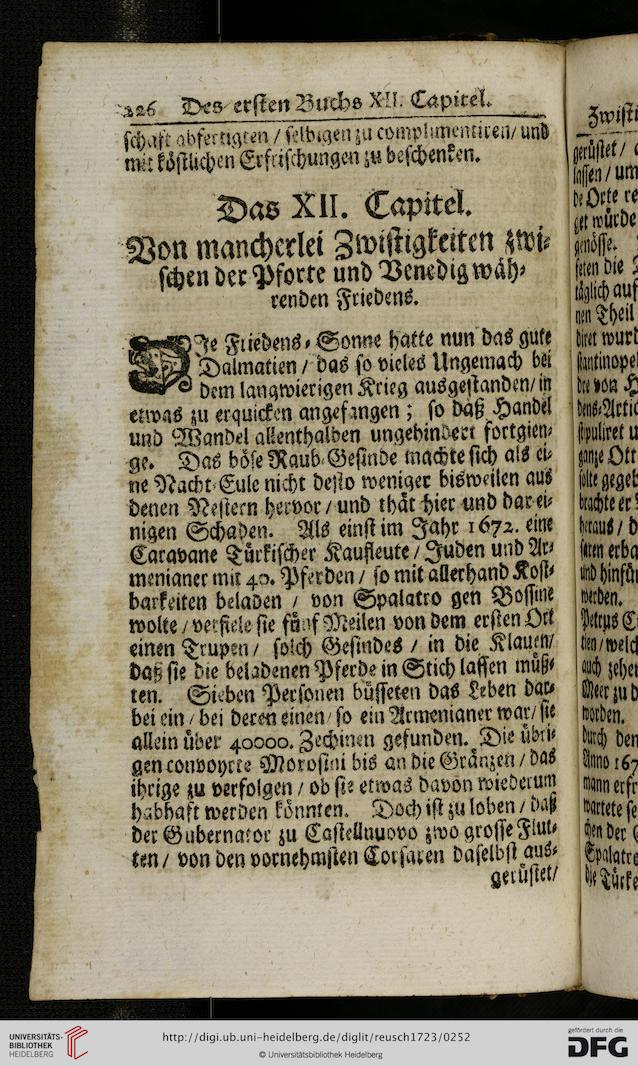 226 Des ersten Buchs XII. Capitel.
schaft abfertigten / selbigen zu complimentiren / und
mit köstlichen Erfrischungen zu beschenken.
Das XII. Capitel.
Von mancherlei Zwistigkeiten zwi-
schen der Pforte und Venedig wäh-
renden Friedens.
DIe Friedens-Sonne hatte nun das gute
Dalmatien / das so vieles Ungemach bei
dem langwierigen Krieg ausgestanden / in
etwas zu erquicken angefangen ; so daß Handel
und Wandel allenthalben ungehindert fortgien-
ge. Das böse Raub-Gesinde machte sich als ei-
ne Nacht-Eule nicht desto weniger bisweilen aus
denen Nestern hervor / und thät hier und dar ei-
nigen Schaden. Als einst im Jahr 1672. eine
Caravane Türkischer Kaufleute / Juden und Ar-
menianer mit 40. Pferden / so mit allerhand Kost-
barkeiten beladen / von Spalatro gen Bossine
wolte / verfiele sie fünf Meilen von dem ersten Ort
einen Trupen / solch Gesindes / in die Klauen /
daß sie die beladenen Pferde in Stich lassen müß-
ten. Sieben Personen büsseten das Leben dar-
bei ein / bei deren einen / so ein Armenianer war / sie
allein über 40000. Zechinen gefunden. Die übri-
gen convoyrte Morosini bis an die Gränzen / das
ihrige zu verfolgen / ob sie etwas davon wiederum
habhaft werden könnten. Doch ist zu loben / daß
der Gubernator zu Castellnuovo zwo grosse Flut-
ten / von den vornehmsten Corsaren daselbst aus-
gerüstet /
gerüstet /
lassen / um
de Orte
get würde
genösse.
seten die
täglich auf
nen Theil
diret wurd
stantinopel
dre von
dens-Artic
stipuliret
ganze Ott
solte gegeb
brachte er
heraus /
saren erba
und hinfür
werden.
Petrus
tien / welch
auch zehen
Meer zu
worden.
durch den
Anno 167
mann erfr
wartete se
chen der
Spalatro
die Türke
UNIVERSITÄTS-
BIBLIOTHEK
HEIDELBERG
http://digi.ub.uni-heidelberg.de/diglit/reusch1723/0252
© Universitätsbibliothek Heidelberg
gefördert durch die
DFG